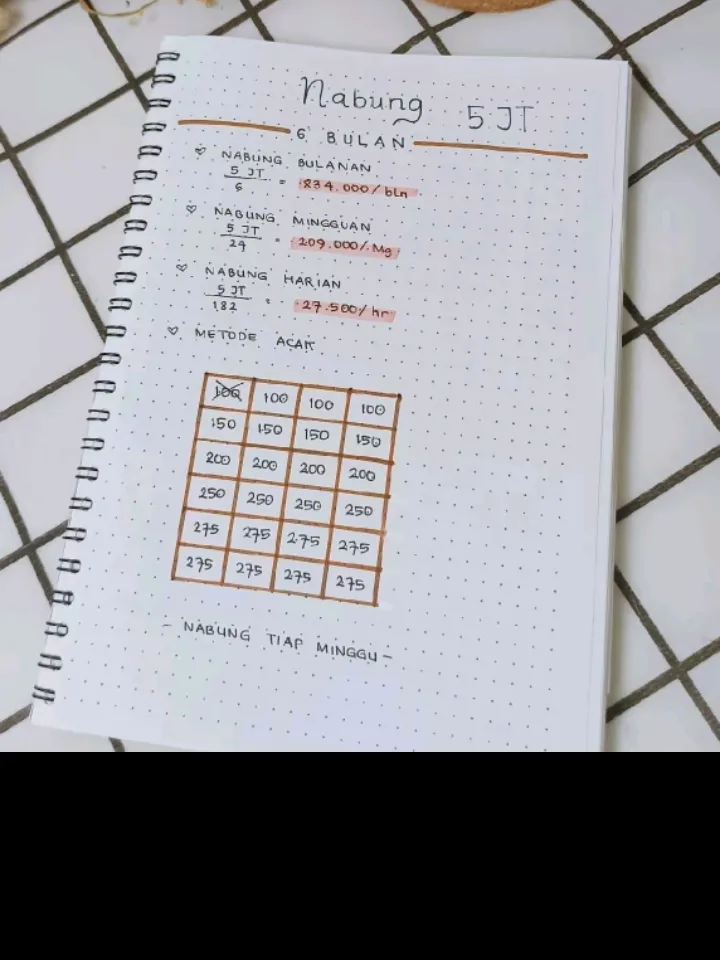 Nabung 5 JT
6 BULAN
♡ NABUNG BULANAN
5 JT
6
= 834.000/bln
♡ NABUNG MINGGUAN
5 JT
24
= 209.000/Mg
♡ NABUNG HARIAN
5 JT
182
= 27.500/hr
♡ METODE ACAK
100 100 100 100
150 150 150 150
200 200 200 200
250 250 250 250
275 275 275 275
275 275 275 275
- NABUNG TIAP MINGGU -